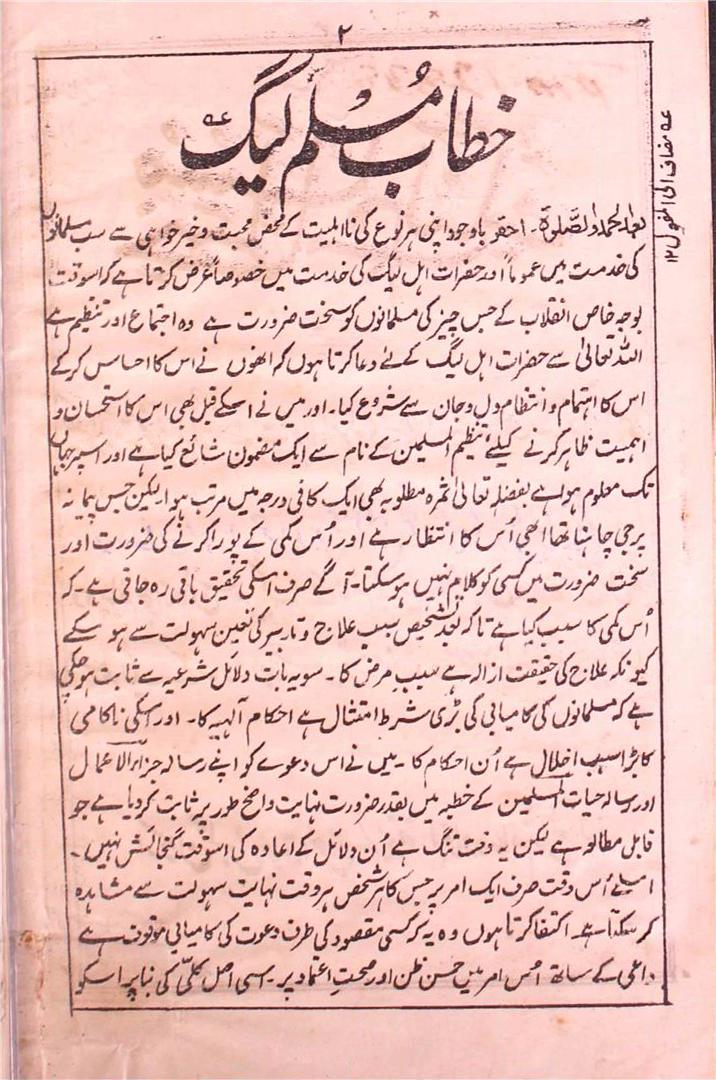 ۲
خطاب مسلم لیگ عہ
عہ مضاف الی المفعول ۱۲
بعد الحمد والصلوٰۃ۔ احقر باوجود اپنی ہر نوع کی نااہلیت کے محض محبت و خیر خواہی سے سب مسلمانوں
کی خدمت میں عموماً اور حضرات اہل لیگ کی خدمت میں خصوصاً عرض کرتا ہے کہ اسوقت
بوجہ خاص انقلاب کے جس چیز کی مسلمانوں کو سخت ضرورت ہے وہ اجتماع اور تنظیم ہے
اللہ تعالیٰ سے حضرات اہل لیگ کے لئے دعا کرتا ہوں کہ انھوں نے اس کا احساس کرکے
اس کا اہتمام و انتظام دل و جان سے شروع کیا۔ اور میں نے اسکے قبل بھی اس کا استحسان و
اہمیت ظاہر کرنے کیلئے تنظیم المسلمین کے نام سے ایک مضمون شائع کیا ہے اور اسپر جہاں
تک معلوم ہوا ہے بفضلہ تعالیٰ ثمرہ مطلوبہ بھی ایک کافی درجہ میں مرتب ہوا۔ لیکن جس پیمانہ
پر جی چاہتا تھا ابھی اُس کا انتظار ہے اور اُس کمی کے پورا کرنے کی ضرورت اور
سخت ضرورت میں کسی کو کلام نہیں ہو سکتا۔ آگے صرف اسکی تحقیق باقی رہ جاتی ہے۔ کہ
اُس کمی کا سبب کیا ہے تاکہ بعد تشخیص سبب علاج و تدابیر کی تعین سہولت سے ہو سکے
کیونکہ علاج کی حقیقت ازالہ ہے سبب مرض کا۔ سو یہ بات دلائل شرعیہ سے ثابت ہو چکی
ہے کہ مسلمانوں کی کامیابی کی بڑی شرط امتثال ہے احکام آلہیہ کا۔ اور اسکی ناکامی
کا بڑا سبب اخلال ہے اُن احکام کا۔ میں نے اس دعوے کو اپنے رسالہ جزاء الاعمال
اور رسالہ حیات المسلمین کے خطبہ میں بقدر ضرورت نہایت واضح طور پر ثابت کردیا ہے جو
قابل مطالعہ ہے لیکن یہ وقت تنگ ہے اُن دلائل کے اعادہ کی اسوقت گنجائش نہیں۔
اسلئے اُس وقت صرف ایک امر پر جس کا ہر شخص ہر وقت نہایت سہولت سے مشاہدہ
کر سکتا ہے۔ اکتفا کرتا ہوں وہ یہ کہ کسی مقصود کی طرف دعوت کی کامیابی موقوف ہے
داعی کے ساتھ اُس امر میں حسن ظن اور صحت اعتماد پر۔ اسی اصل کلی کی بنا پر اسکو